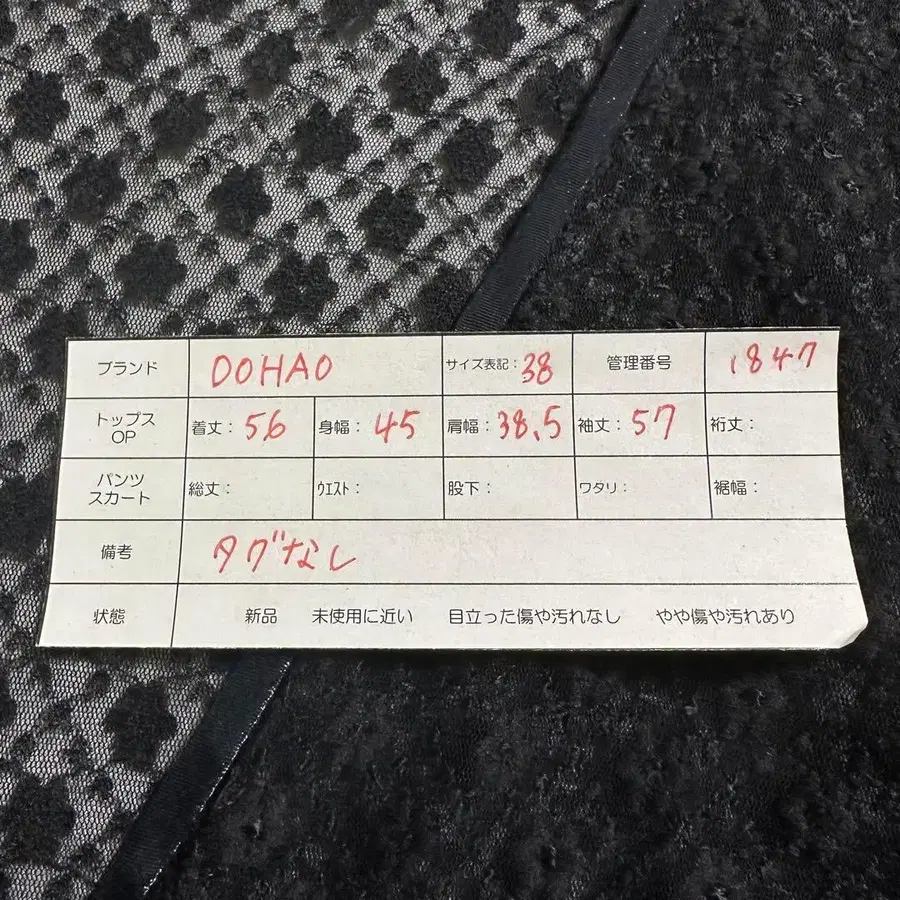 ブランド DOHAO サイズ表記：38 管理番号 1847
トップス OP 着丈：56 身幅：45 肩幅：38.5 袖丈：57 裄丈：
パンツ スカート 総丈： ウエスト： 股下： ワタリ： 裾幅：
備考 タグなし
状態 新品 未使用に近い 目立った傷や汚れなし やや傷や汚れあり